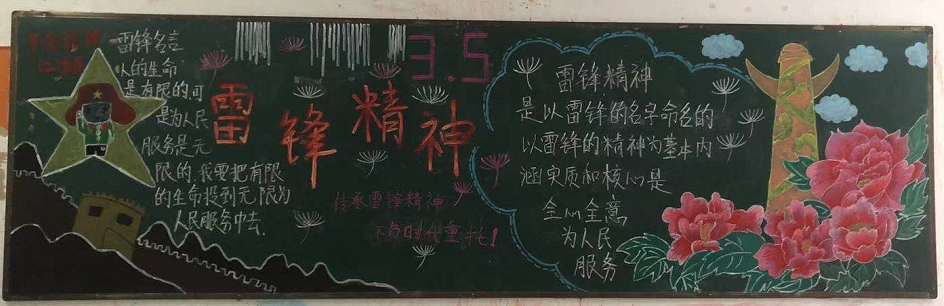 雷锋名言
人的生命
是有限的,可
是为人民
服务是无
限的,我要把有限
的生命投到无限为
人民服务中去
雷锋精神
3.5
传承雷锋精神
不负时代重托!
雷锋精神
是以雷锋的名字命名的
以雷锋的精神为基本内
涵实质和核心是
全心全意
为人民
服务